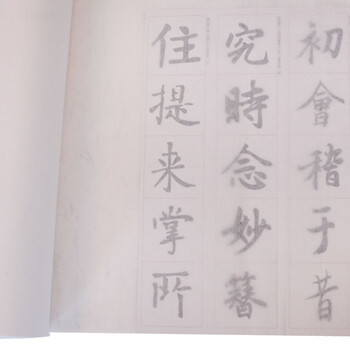 初會稽于昔
究時念妙簪
住提来掌所